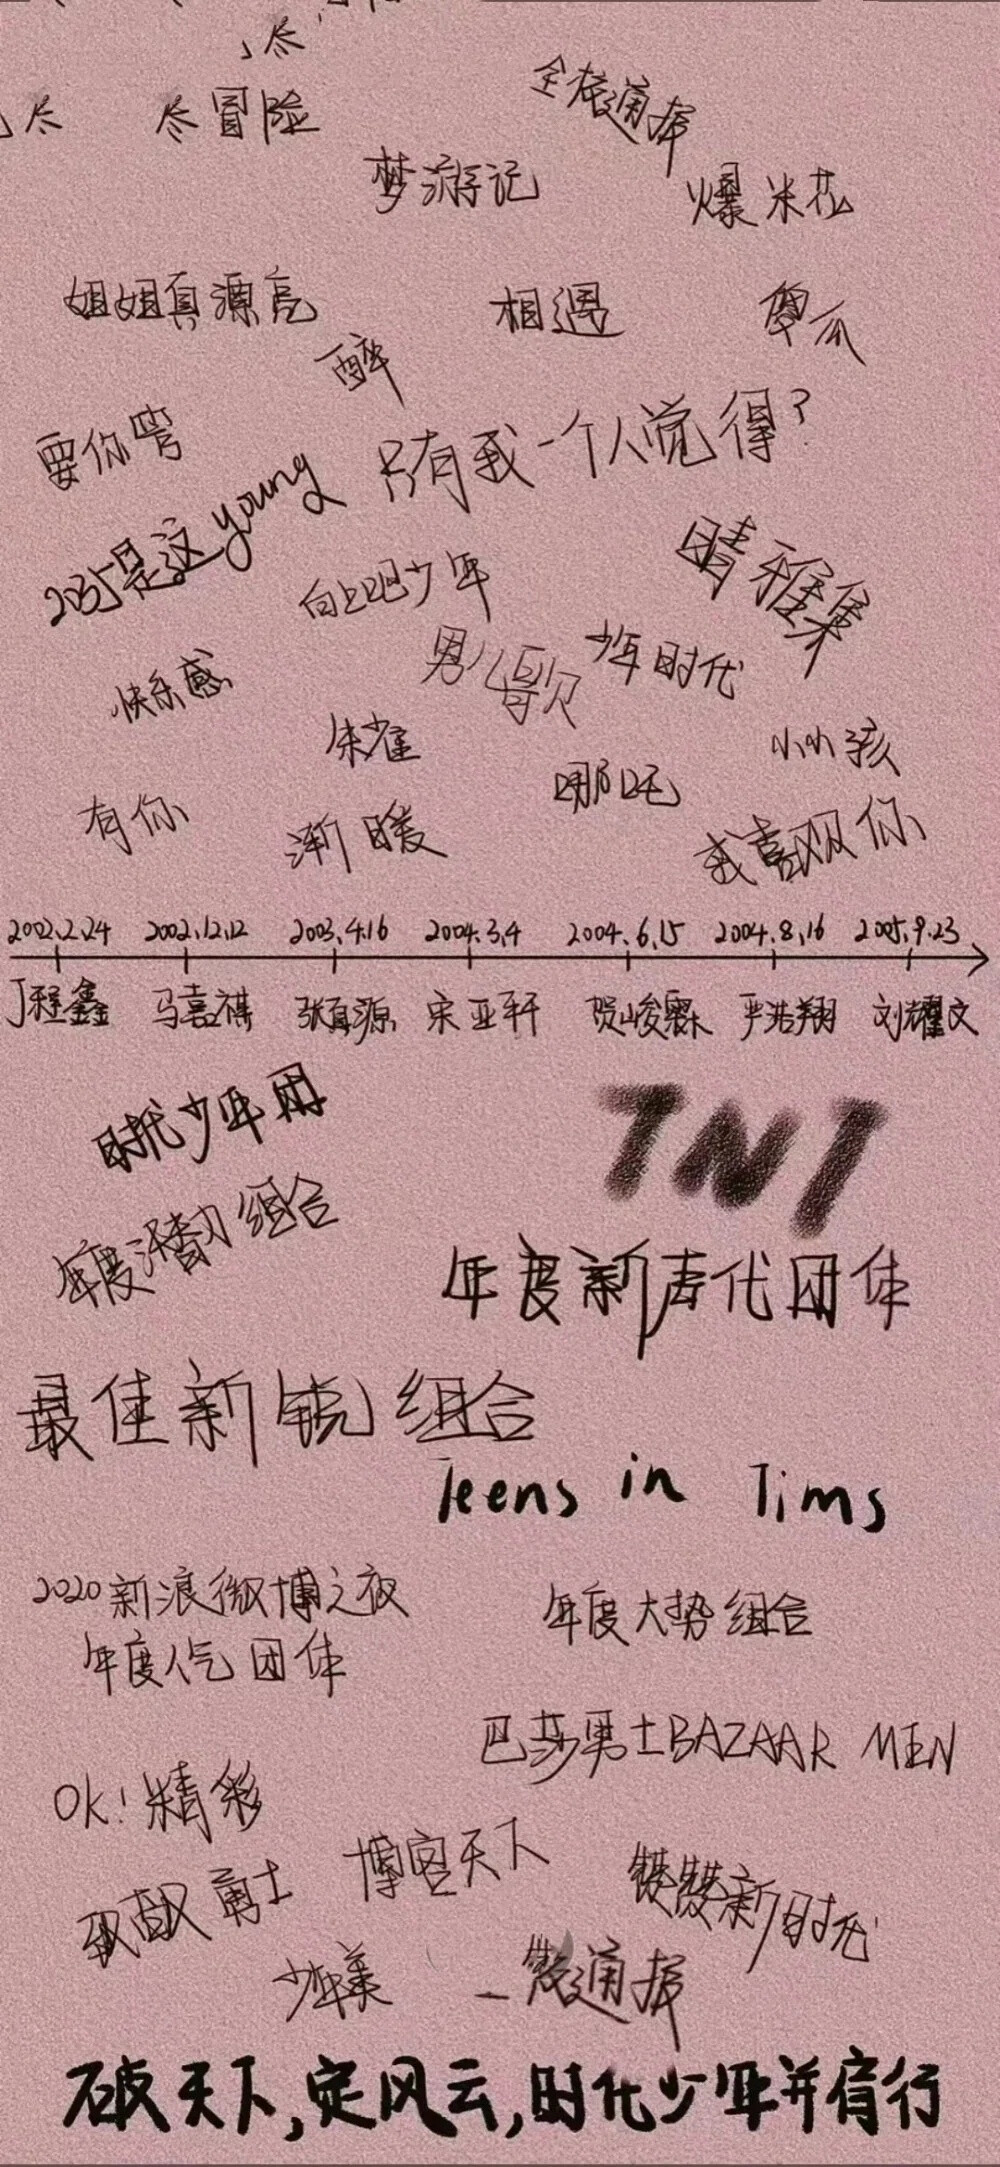 尽
尽 尽冒险
全核通揖
梦游记
爆米花
姐姐真源亮
相遇
傻瓜
醉
要你管
只有我一个人觉得?
2035是这young
向上吧少年
晴雅集
男儿歌
少年时代
快乐感
朱雀
小小孩
哪吒
有你
渐暖
我喜欢你
2002.2.24 2002.12.12 2003.4.16 2004.3.4 2004.6.15 2004.8.16 2005.9.23
丁程鑫 马嘉祺 张真源 宋亚轩 贺峻霖 严浩翔 刘耀文
时代少年团
TNT
年度潜力组合
年度新声代团体
最佳新锐组合
Teens in Tims
2020新浪微博之夜
年度人气团体
年度大势组合
巴莎男士BAZAAR MEN
OK!精彩
博客天下
飒飒勇士
新时代
少年美
破天下,定风云,时代少年并肩行